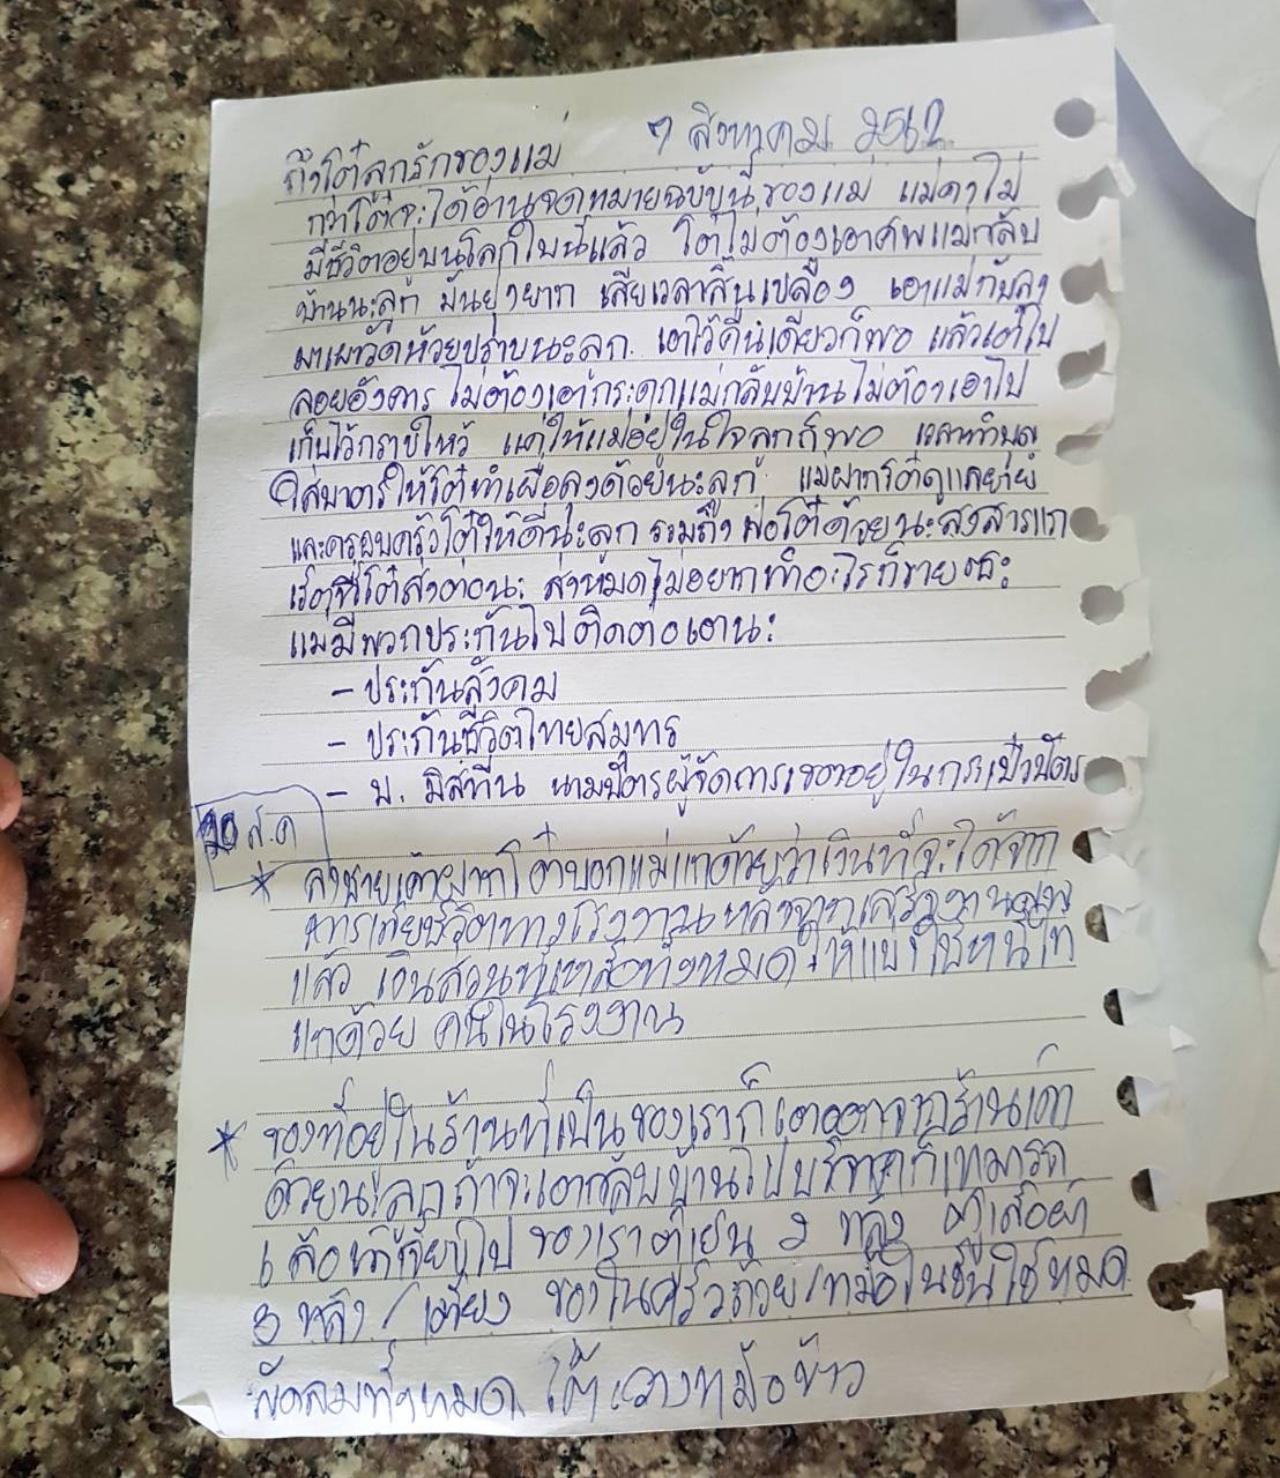 7 สิงหาคม 2562
ถึงโต๋ลูกรักของแม่
กว่าโต๋จะได้อ่านจดหมายฉบับนี้ของแม่ แม่คงไม่
มีชีวิตอยู่บนโลกใบนี้แล้ว โต๋ไม่ต้องเอาศพแม่กลับ
บ้านนะลูก มันยุ่งยาก เสียเวลาสิ้นเปลือง เอาแม่กับลุง
มาเผาวัดห้วยปราบนะลูก เอาไว้คืนเดียวก็พอ แล้วเอาไป
ลอยอังคาร ไม่ต้องเอากระดูกแม่กลับบ้านไม่ต้องเอาไป
เก็บไว้กราบไหว้ แค่ให้แม่อยู่ในใจลูกก็พอ เวลาทำบุญ
ใส่บาตรให้โต๋ทำเผื่อลุงด้วยนะลูก แม่ฝากโต๋ดูแลยาย
และครอบครัวโต๋ให้ดีนะลูก รวมถึง พ่อโต๋ด้วยนะสงสารแก
โต๋ส่งต่อนะ ส่งหมดไม่อยากทำอะไรก็ขายซะ
แม่มีพวกประกันไปติดต่อเอานะ
- ประกันสังคม
- ประกันชีวิตไทยสมุทร
- บ. มิสทีน นามบัตรผู้จัดการเขตอยู่ในกระเป๋าบัตร
10 ส.ค
* ลุงชายเค้าฝากโต๋บอกแม่แกด้วยว่าเงินที่จะได้จาก
การเสียชีวิตทางโรงงาน หลังจากเสร็จงานศพ
แล้ว เงินส่วนที่เหลือทั้งหมด ให้แม่ใช้หนี้ให้
แกด้วย คนในโรงงาน
* ของที่อยู่ในร้านที่เป็นของเราก็เอาออกจากร้านเค้า
ด้วยนะลูกถ้าจะเอากลับบ้านไปบริจาคก็เหมารถ
ของเราตู้เย็น 2 หลัง ตู้เสื้อผ้า
3 หลัง / เตียง ของในครัวถ้วย/หม้อในชั้นใช้หมด
พัดลมทั้งหมด โต๊ะวางหม้อข้าว